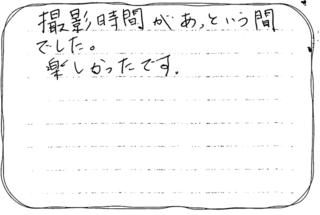 撮影時間があっという間
でした。
楽しかったです.